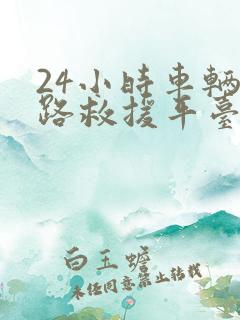 24小時車輛
路救援平臺
白玉蟾
未经同意禁止转载